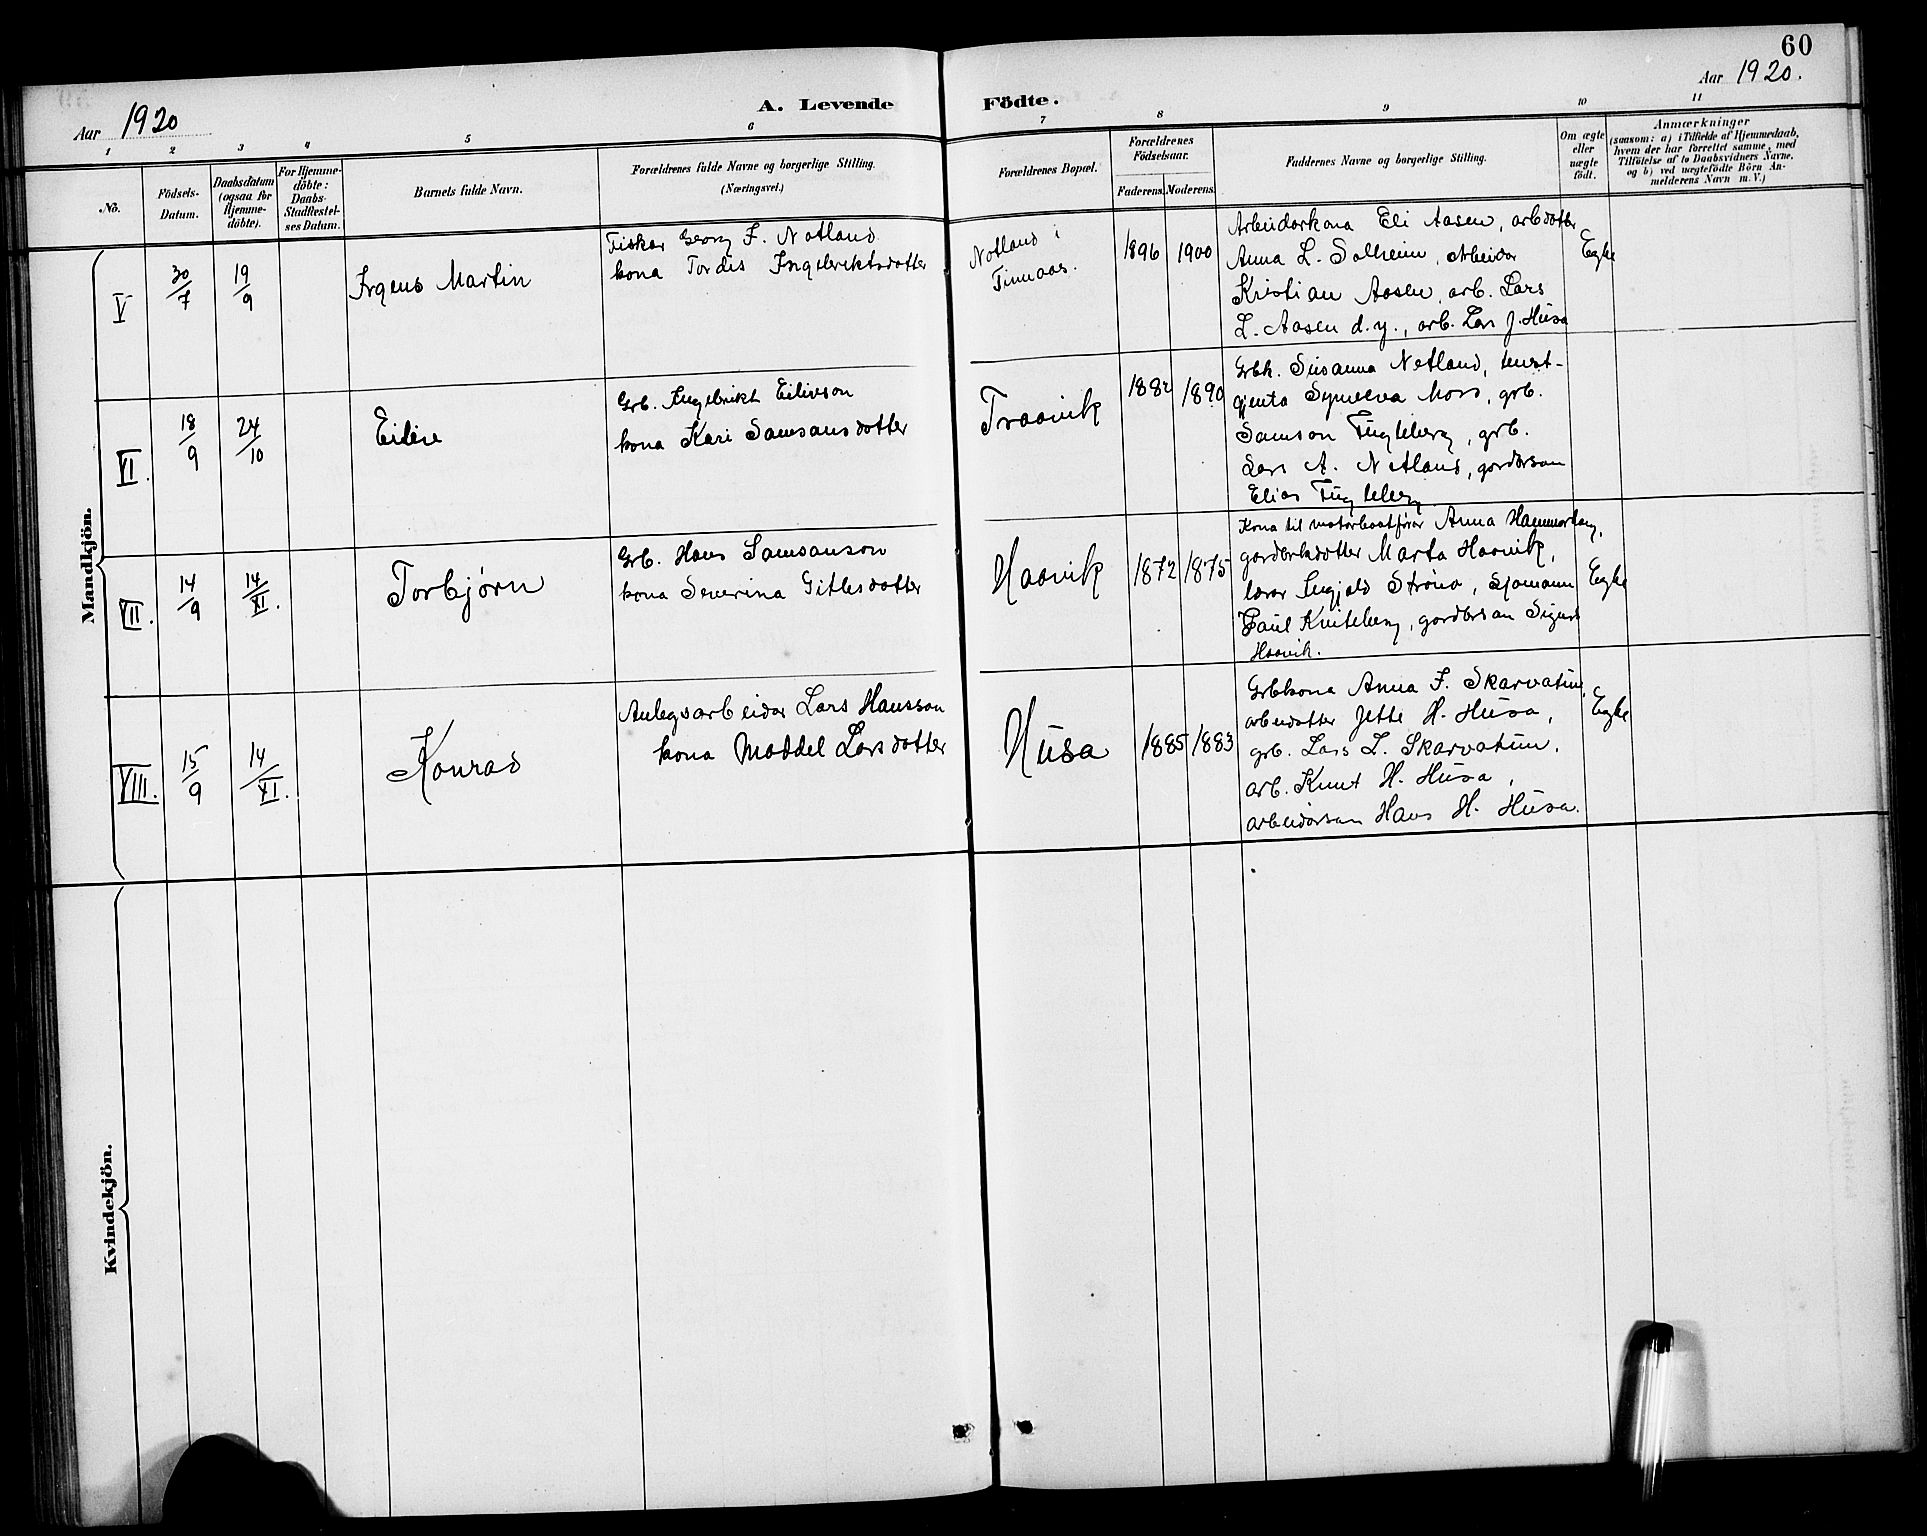 60
Aar 1920
A. Levende Födte.
Aar 1920.
1 2 3 4 5 6 7 8 9 10 11
No.
Födsels-
Datum.
Daabsdatum
(ogsaa for
Hjemme-
döbte).
For Hjemme-
döbte:
Daabs-
Stadfæstel-
ses Datum.
Barnets fulde Navn.
Forældrenes fulde Navne og borgerlige Stilling.
(Næringsvei.)
Forældrenes Bopæl.
Forældrenes
Födselsaar.
Faderens. Moderens.
Faddernes Navne og borgerlige Stilling.
Om ægte
eller
uægte
födt.
Anmærkninger
(saasom: a) i Tilfælde af Hjemmedaab,
hvem der har forrettet samme, med
Tilföielse af to Daabsvidners Navne,
og b) ved uægtefödte Börn An-
melderens Navn m. V.)
Mandkjön.
V
30/7
19/9
Irgens Martin
Fiskar Georg F. Notland
kona Tordis Ingebriktsdotter
Notland i
Finnaas.
1896 1900
Arbeidarkona Eli Aasen, arbdotter
Anna L. Solheim, arbeidar
Kristian Aasen, arb. Lars
L. Aasen d.y., arb. Lars J. Husa
Egte
VI.
18/9
24/10
Eiliv
Grb. Ingebrikt Eilivson
kona Kari Samsonsdotter
Traavik
1882 1890
Grbk. Susanna Netland, tenest-
gjenta Synneva Moss, grb.
Samson Fugleberg, grb.
Lars A. Netland, gardarson
Elias Fugleberg
VII.
14/9
14/XI.
Torbjørn
Grb. Hans Samsonson
kona Severina Gitlesdotter
Haavik
1872 1875
Kona til motorbaatførar Anna Hammarhaug,
gardbrdotter Marta Haavik,
lærar Ingjald Strønо, sjømann
Paul Kviteberg, gardbrson Sigurd
Haavik.
Egte
VIII.
15/9
14/XI.
Konrad
Anlegsarbeidar Lars Hansson
kona Maddel Larsdotter
Husa
1885 1883
Grbkona Anna F. Skarvatun,
arbeidotter Jette H. Husa,
grb. Lars L. Skarvatun,
arb. Knut H. Husa,
arbeidarson Hans H. Husa.
Egte
Kvindekjön.